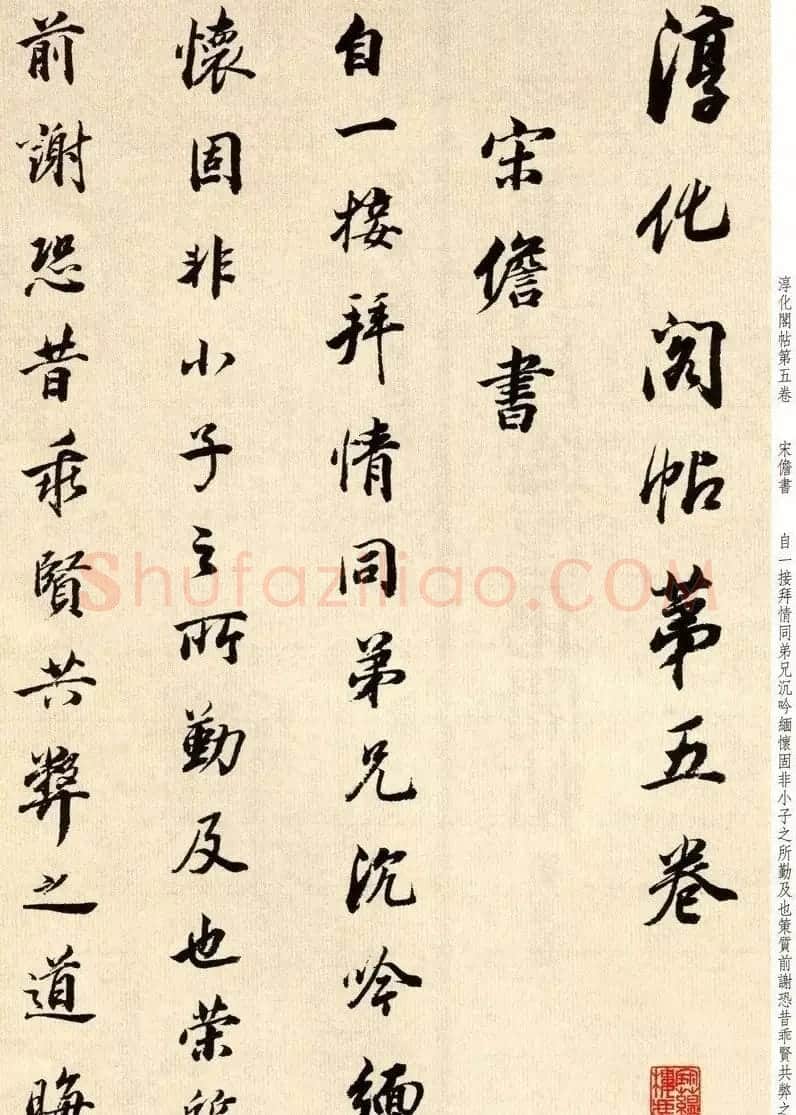 淳化閣帖第五卷 宋儋書 自一接拜情同弟兄沉吟緬懷固非小子之所勤及也策質前謝恐昔乖賢共弊之
淳化閣帖第五卷
宋儋書
自一接拜情同弟兄沉吟緬
懷固非小子之所勤及也策
前謝恐昔乖賢共弊之道晦
Shufaziliao.COM